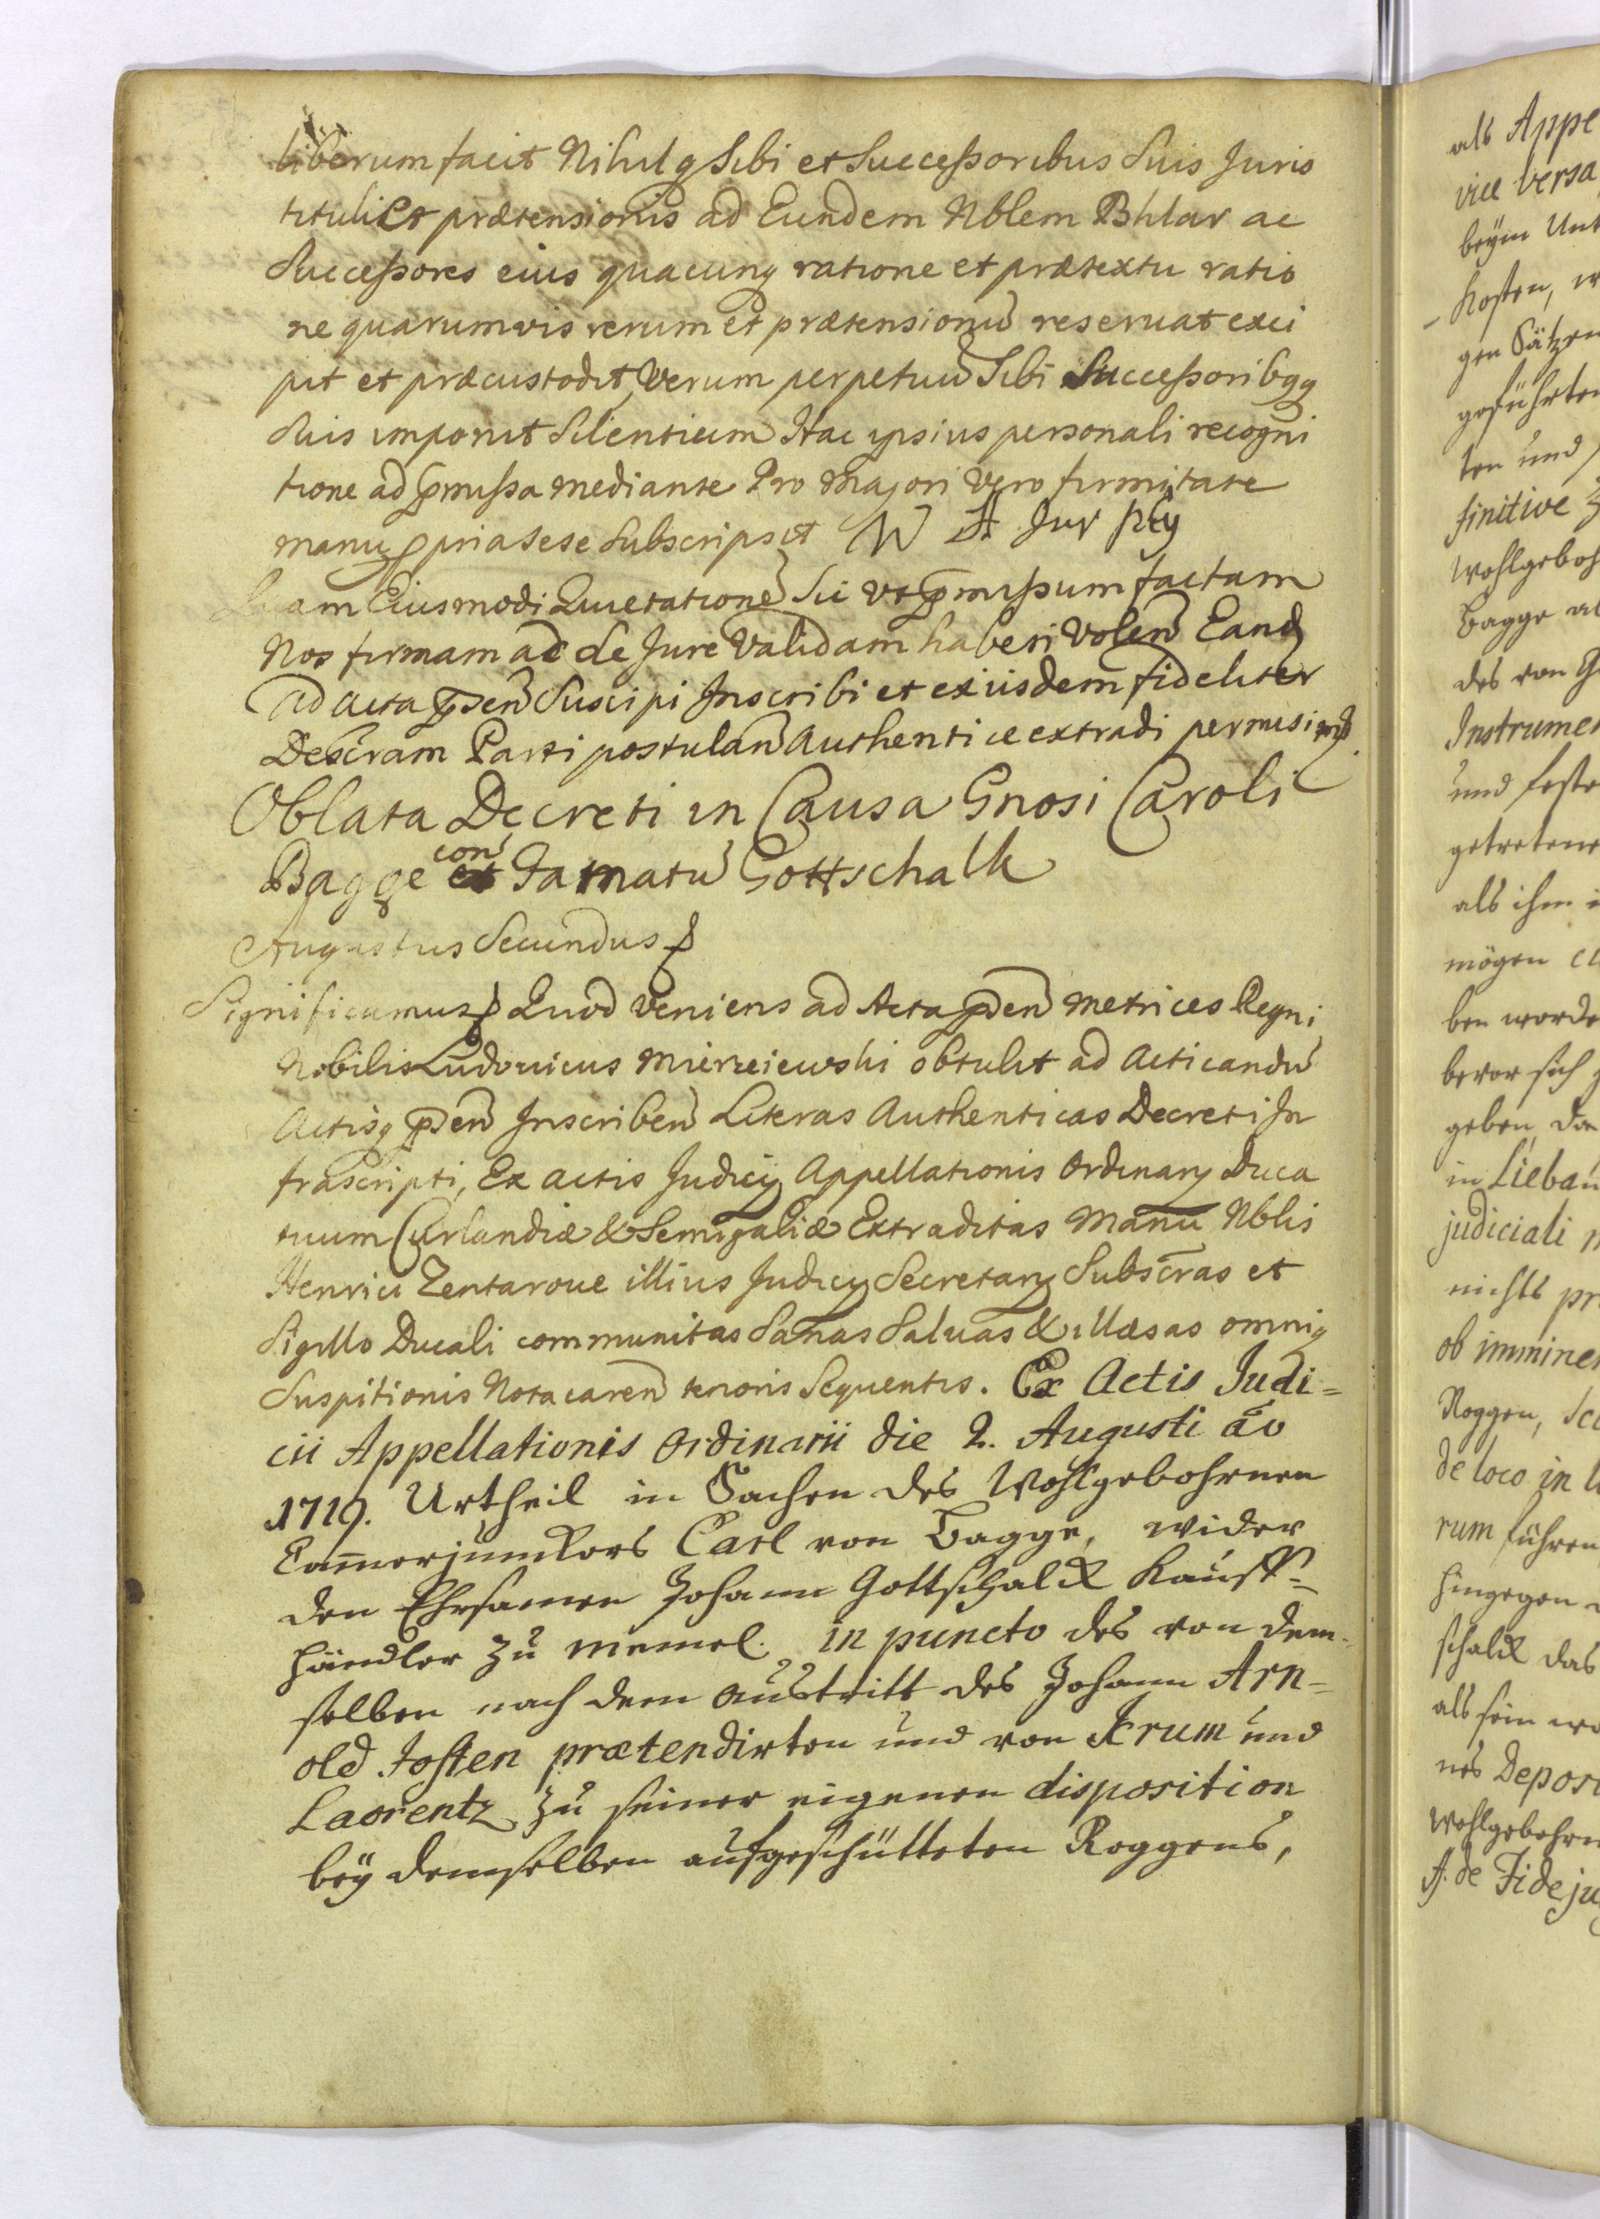 liberum facit Nihilq Sibi et Successoribus Suis Juris
tituli et prætensionis ad Eundem Nblem Bhlar ac
Successores eius quacunq ratione et prætextu ratio
ne quarumvis rerum et prætensionũ reservat exci
pit et præcustodit, Verum perpetuũ Sibi Successoribqq
Suis imponit Silentium Hac ipsius personali recogni
tione ad pmissa mediante Pro Majori Vero firmitate
manu ppria sese Subscripsit W A Jur
Quam Eiusmodi Quietationẽ Sic vt pmissum factam
Nos firmam ac de Jure Validam haberi Volen Eand
ad acta pden Suscipi Inscribi et ex iisdem fideliter
Descram Parti postulan Authentice extradi permisimq
Oblata Decreti in Causa Gnosi Caroli
Bagge con Famatũ Gottschalk
Augustus Secundus
Significamus Quod Veniens ad Acta pden Metrices Regni
Nobilis Ludovicus Mierzeiewski obtulit ad Acticandũ
Actisq pden Inscriben Literas Authenticas Decreti In
frascripti, Ex actis Judicÿ Appellationis Ordinarÿ Duca
tuum Curlandiæ & Semigaliæ Extraditas Manu Nblis
Henrici Zentarove illius Judicÿ Secretarÿ Subscras et
Sigillo Ducali communitas Sanas Salvas & illæsas omniq
Suspitionis Nota caren tenoris Sequentis. Ex Actis Judi=
cii Appellationis Ordinarii die 2. Augusti aõ
1719. Urtheil in Sachen des Wohlgebohrnen
Camerjunkers Carl von Bagge, wider
den Ehrsamen Johann Gottschalck Kauff=
händler zu Memel. in puncto des von dem=
selben nach dem Austritt des Johann Arn=
old Josten prætendirten und von Krum und
Laorentz zu seiner eigenen disposition
beÿ demselben aufgeschütteten Roggens,
als Appe
vice versa
beym Unt
kosten,
gen Sätzen
geführten
ten und
finitive
Wohlgeboh
Bagge
des von
Instrumen
und feste
getretene
als ihm
mögen
ben worde
bevor sich
geben
in Liebau
judiciali
nichts
ob imminen
Roggen,
de loco in
rum führen
hingegen
schalck das
als sein
nes Depos
Wohlgebohrn
de Fideju